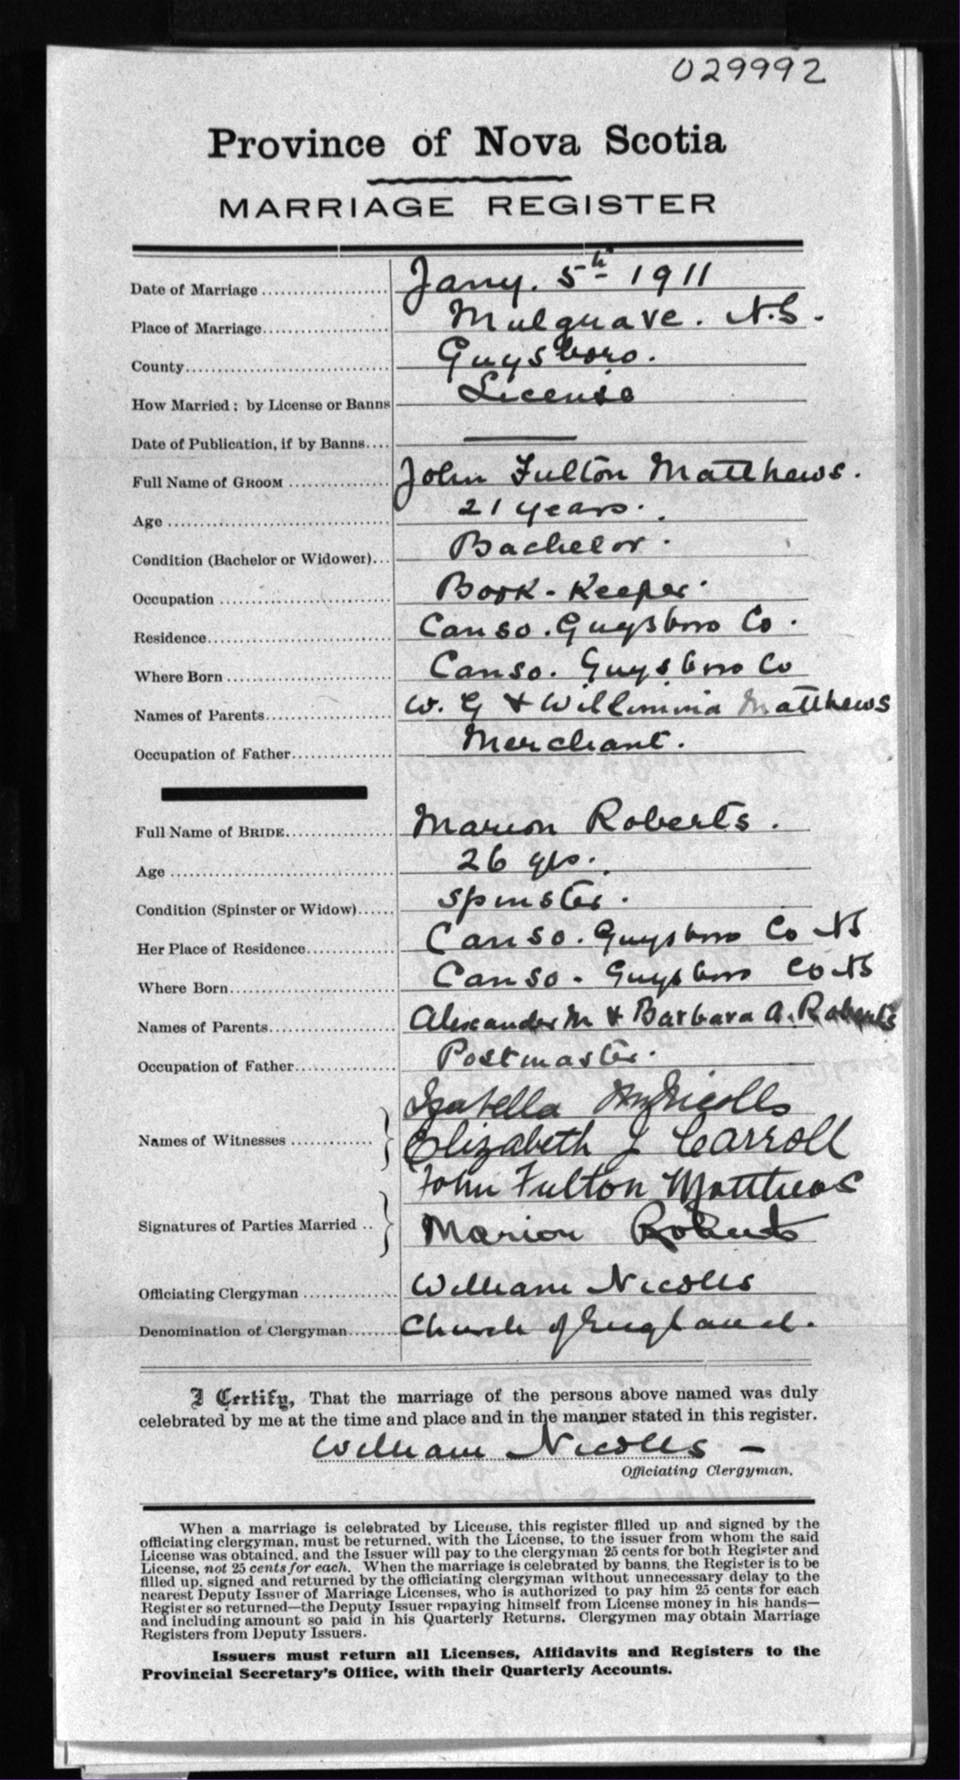 029992
Province of Nova Scotia
MARRIAGE REGISTER
Date of Marriage .................... Jany. 5th 1911
Place of Marriage.................... Mulgrave. N.S.
County.................... Guysboro.
How Married; by License or Banns License
Date of Publication, if by Banns.... ——
Full Name of GROOM .................... John Fulton Matthews.
Age .................... 21 years.
Condition (Bachelor or Widower)... Bachelor.
Occupation .................... Book-Keeper.
Residence.................... Canso. Guysboro Co.
Where Born .................... Canso. Guysboro Co
Names of Parents.................... W. G & Willimina Matthews
Occupation of Father.................... Merchant.
Full Name of BRIDE.................... Marion Roberts.
Age .................... 26 yrs.
Condition (Spinster or Widow)...... Spinster.
Her Place of Residence............. Canso. Guysboro Co NS
Where Born.................... Canso. Guysboro Co NS
Names of Parents.................... Alexander M & Barbara A. Roberts
Occupation of Father.................... Postmaster.
Izabella Nicolls
Names of Witnesses ............. } Elizabeth J Carroll
John Fulton Matthews
Signatures of Parties Married .. } Marion Roberts
Officiating Clergyman ............... William Nicolls
Denomination of Clergyman........ Church of England.
I Certify, That the marriage of the persons above named was duly
celebrated by me at the time and place and in the manner stated in this register.
William Nicolls —
Officiating Clergyman.
When a marriage is celebrated by License, this register filled up and signed by the
officiating clergyman, must be returned, with the License, to the issuer from whom the said
License was obtained, and the Issuer will pay to the clergyman 25 cents for both Register and
License, not 25 cents for each. When the marriage is celebrated by banns, the Register is to be
filled up, signed and returned by the officiating clergyman without unnecessary delay to the
nearest Deputy Issuer of Marriage Licenses, who is authorized to pay him 25 cents for each
Register so returned—the Deputy Issuer repaying himself from License money in his hands—
and including amount so paid in his Quarterly Returns. Clergymen may obtain Marriage
Registers from Deputy Issuers.
Issuers must return all Licenses, Affidavits and Registers to the
Provincial Secretary's Office, with their Quarterly Accounts.